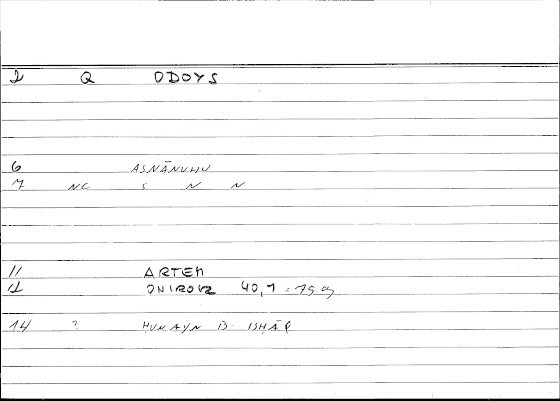 2 Q ODOYS
6 ASNĀNUHU
7 NC S N N
11 ARTEM
12 ONIROCR 40,1 =
14 ? ḤUNAYN B. ISḤĀQ